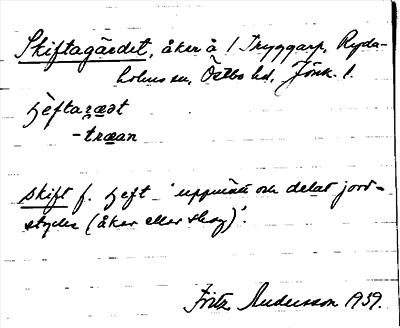 Skiftagärdet, åker å 1 Tryggarp, Ryda-
holms sn, Östbo hd, Jönk. l.
ɧèftaɀæ̀t
-træan
skift f. ɧeft 'uppmätt och delat jord-
stycke (åker eller skog)'.
Fritz Andersson 1939.